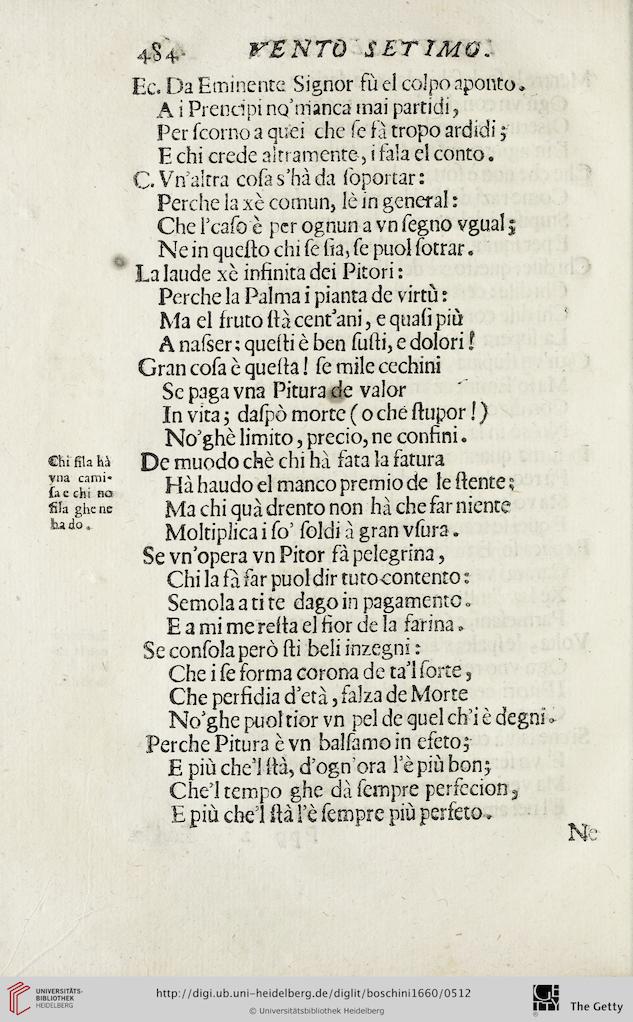 484 VENTO SETIMO.
Ec. Da Eminente Signor fù el colpo aponto.
A i Prencipi no'manca mai partidi,
Per ſcorno a quei che ſe fà tropo ardidi;
E chi crede altramente, i fala el conto.
C. Vn'altra coſa s'hà da ſoportar:
Perche la xè comun, lè in general:
Che l'caſo è per ognun a vn ſegno vgual;
Ne in queſto chi ſe ſia, ſe puol ſotrar.
La laude xè infinita dei Pitori:
Perche la Palma i pianta de virtù:
Ma el fruto ſtà cent'ani, e quaſi più
A naſser; queſti è ben fuſti, e dolori!
Gran coſa è queſta! ſe mile cechini
Se paga vna Pitura de valor
In vita; daſpò morte (o che ſtupor!)
No'ghè limito, precio, ne confini.
Chi fila hà
vna cami-
ſa e chi no
fila ghe ne
ha do.
De muodo chè chi hà fata la fatura
Hà haudo el manco premio de le ſtente;
Ma chi quà drento non hà che far niente
Moltiplica i ſo' ſoldi à gran vſura.
Se vn'opera vn Pitor fà pelegrina,
Chi la fà far puol dir tuto contento:
Semola a ti te dago in pagamento.
E a mi me reſta el fior de la farina.
Se conſola però ſti beli inzegni:
Che i ſe forma corona de ta'l ſorte,
Che perfidia d'età, falza de Morte
No'ghe puol tior vn pel de quel ch'i è degni.
Perche Pitura è vn balſamo in efeto;
E più che'l ſtà, d'ogn'ora l'è più bon;
Che'l tempo ghe dà ſempre perfecion,
E più che'l ſtà l'è ſempre più perfeto.
Ne
UNIVERSITÄTS-
BIBLIOTHEK
HEIDELBERG
http://digi.ub.uni-heidelberg.de/diglit/boschini1660/0512
© Universitätsbibliothek Heidelberg
GETTY
The Getty